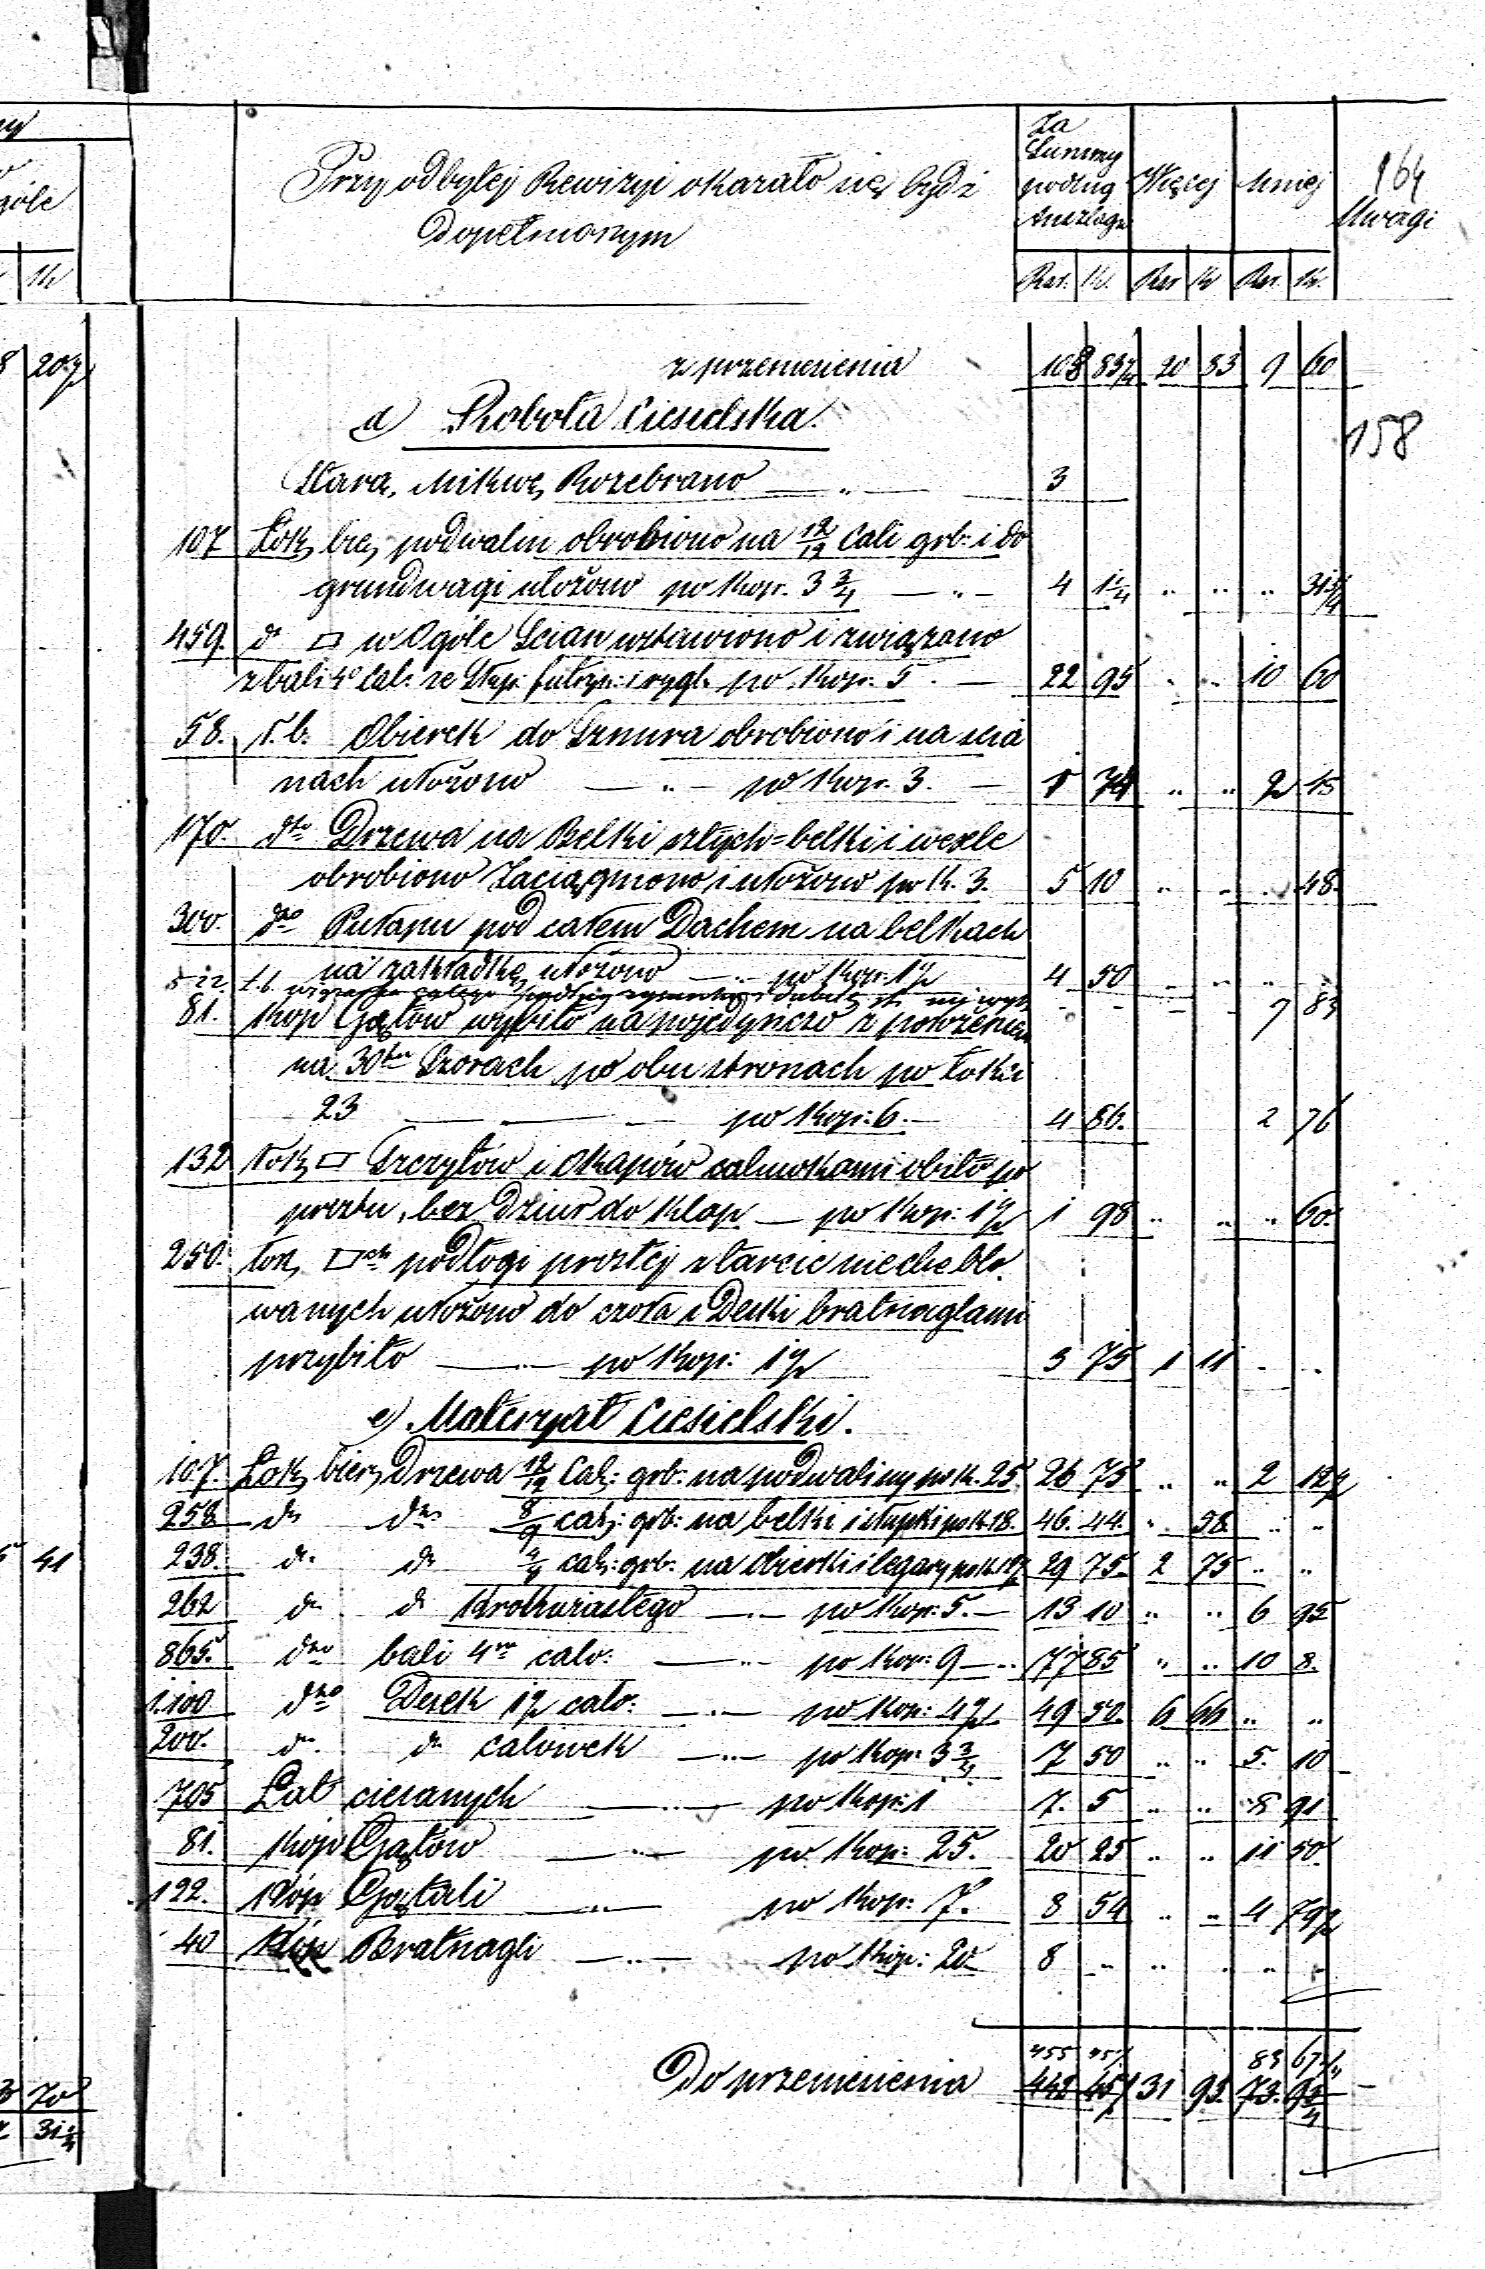 164
Przy odbytej Rewizyi okazało się bydź
dopełnionym
Za
Summy
podług
Anszlagu
Więcej
Mniej
Uwagi
Rsr. K. Rsr K Rsr. K.
z przeniesienia 108 83 1/4 20 83 9 60
158
d) Robota Ciesielska.
Starą Mikwę Rozebrano — „ — 3
107 Łok. bież. podwalin obrobiono na 12/12 Cali grb: i do
grundwagi ułożono po Kop. 3 3/4 — „ — 4 1 1/4 „ „ „ 31 3/4
459. do □ w Ogóle Scian wstawiono i związano
z bali 4o Cal: ze Słup: futryn: i rygl: po Kop. 5. — 22 95 „ „ 10 60
58. Ł. b. Obierek do Sznura obrobiono i na scia
nach ułożono — „ — po Kop. 3. — 1 74 „ „ 2 15
170. dto Drzewa na Belki sztych=belki i wexle
obrobiono Zaciągniono i ułożono po K. 3. 5 10 „ „ „ 48.
300. dto Pułapu pod całem Dachem na belkach
na zakładkę ułożono — „ — po Kop: 1 1/2 4 50 „ „ „ „
Ł. b. wiązania całego podług rysunku
9 83
81. Kop Gątów wybito na pojedyńczo z położeniem
na 30tu Szorach po obu stronach po Łokci
23 — — po Kop: 6. — 4 86. 2 76
132 Łok. □ Szczytów i Okapów calówkami obito po
prostu, bez Dziur do Klap — po Kop: 1 1/2 1 98 „ „ „ 60.
250. Łok. □ch podłogi prostej z tarcic nieheblo
wanych ułożono do czoła i Deski bratnaglami
przybito — „ — po Kop: 1 1/2 3 75 1 11 „ „
e) Materyał Ciesielski.
107. Łok. bież. Drzewa 12/12 Cal: grb: na podwaliny po k. 25 26 75 „ „ 2 12 1/2
258 do dto 8/9 cal: grb: na belki i słupki po k 18. 46. 44. „ 58. „ „
238. do do cal: grb: na Obierki i legary po k 12 1/2 29 75 2 75 „ „
262 do do Krokwiastego — „ — po Kop: 5. — 13 10 „ „ 6 95
865. dto bali 4ro calo: — „ — po Kop: 9 — „ 77 85 „ „ 10 8.
1.100 dto Desek 1 1/2 calo: — „ — po Kop: 4 1/2 49 50. 6 66 „ „
200. do do calówek — „ — po Kop: 3 3/4 7 50 „ „ 5. 10
705 Łat ciesanych — „ — po Kop: 1 7. 5 „ „ 8 91
81. Kop Gątów — „ — po Kop: 25. 20 25 „ „ 11 50.
122. Kóp Gątali — „ — po Kop: 7. 8 54 „ „ 4 79 1/2
40 Kóp Bratnagli — „ — po Kop: 20 8 „ „ „ „ „
455 45 83 67
Do przeniesienia 442 45 1/2 31 93. 73. 93